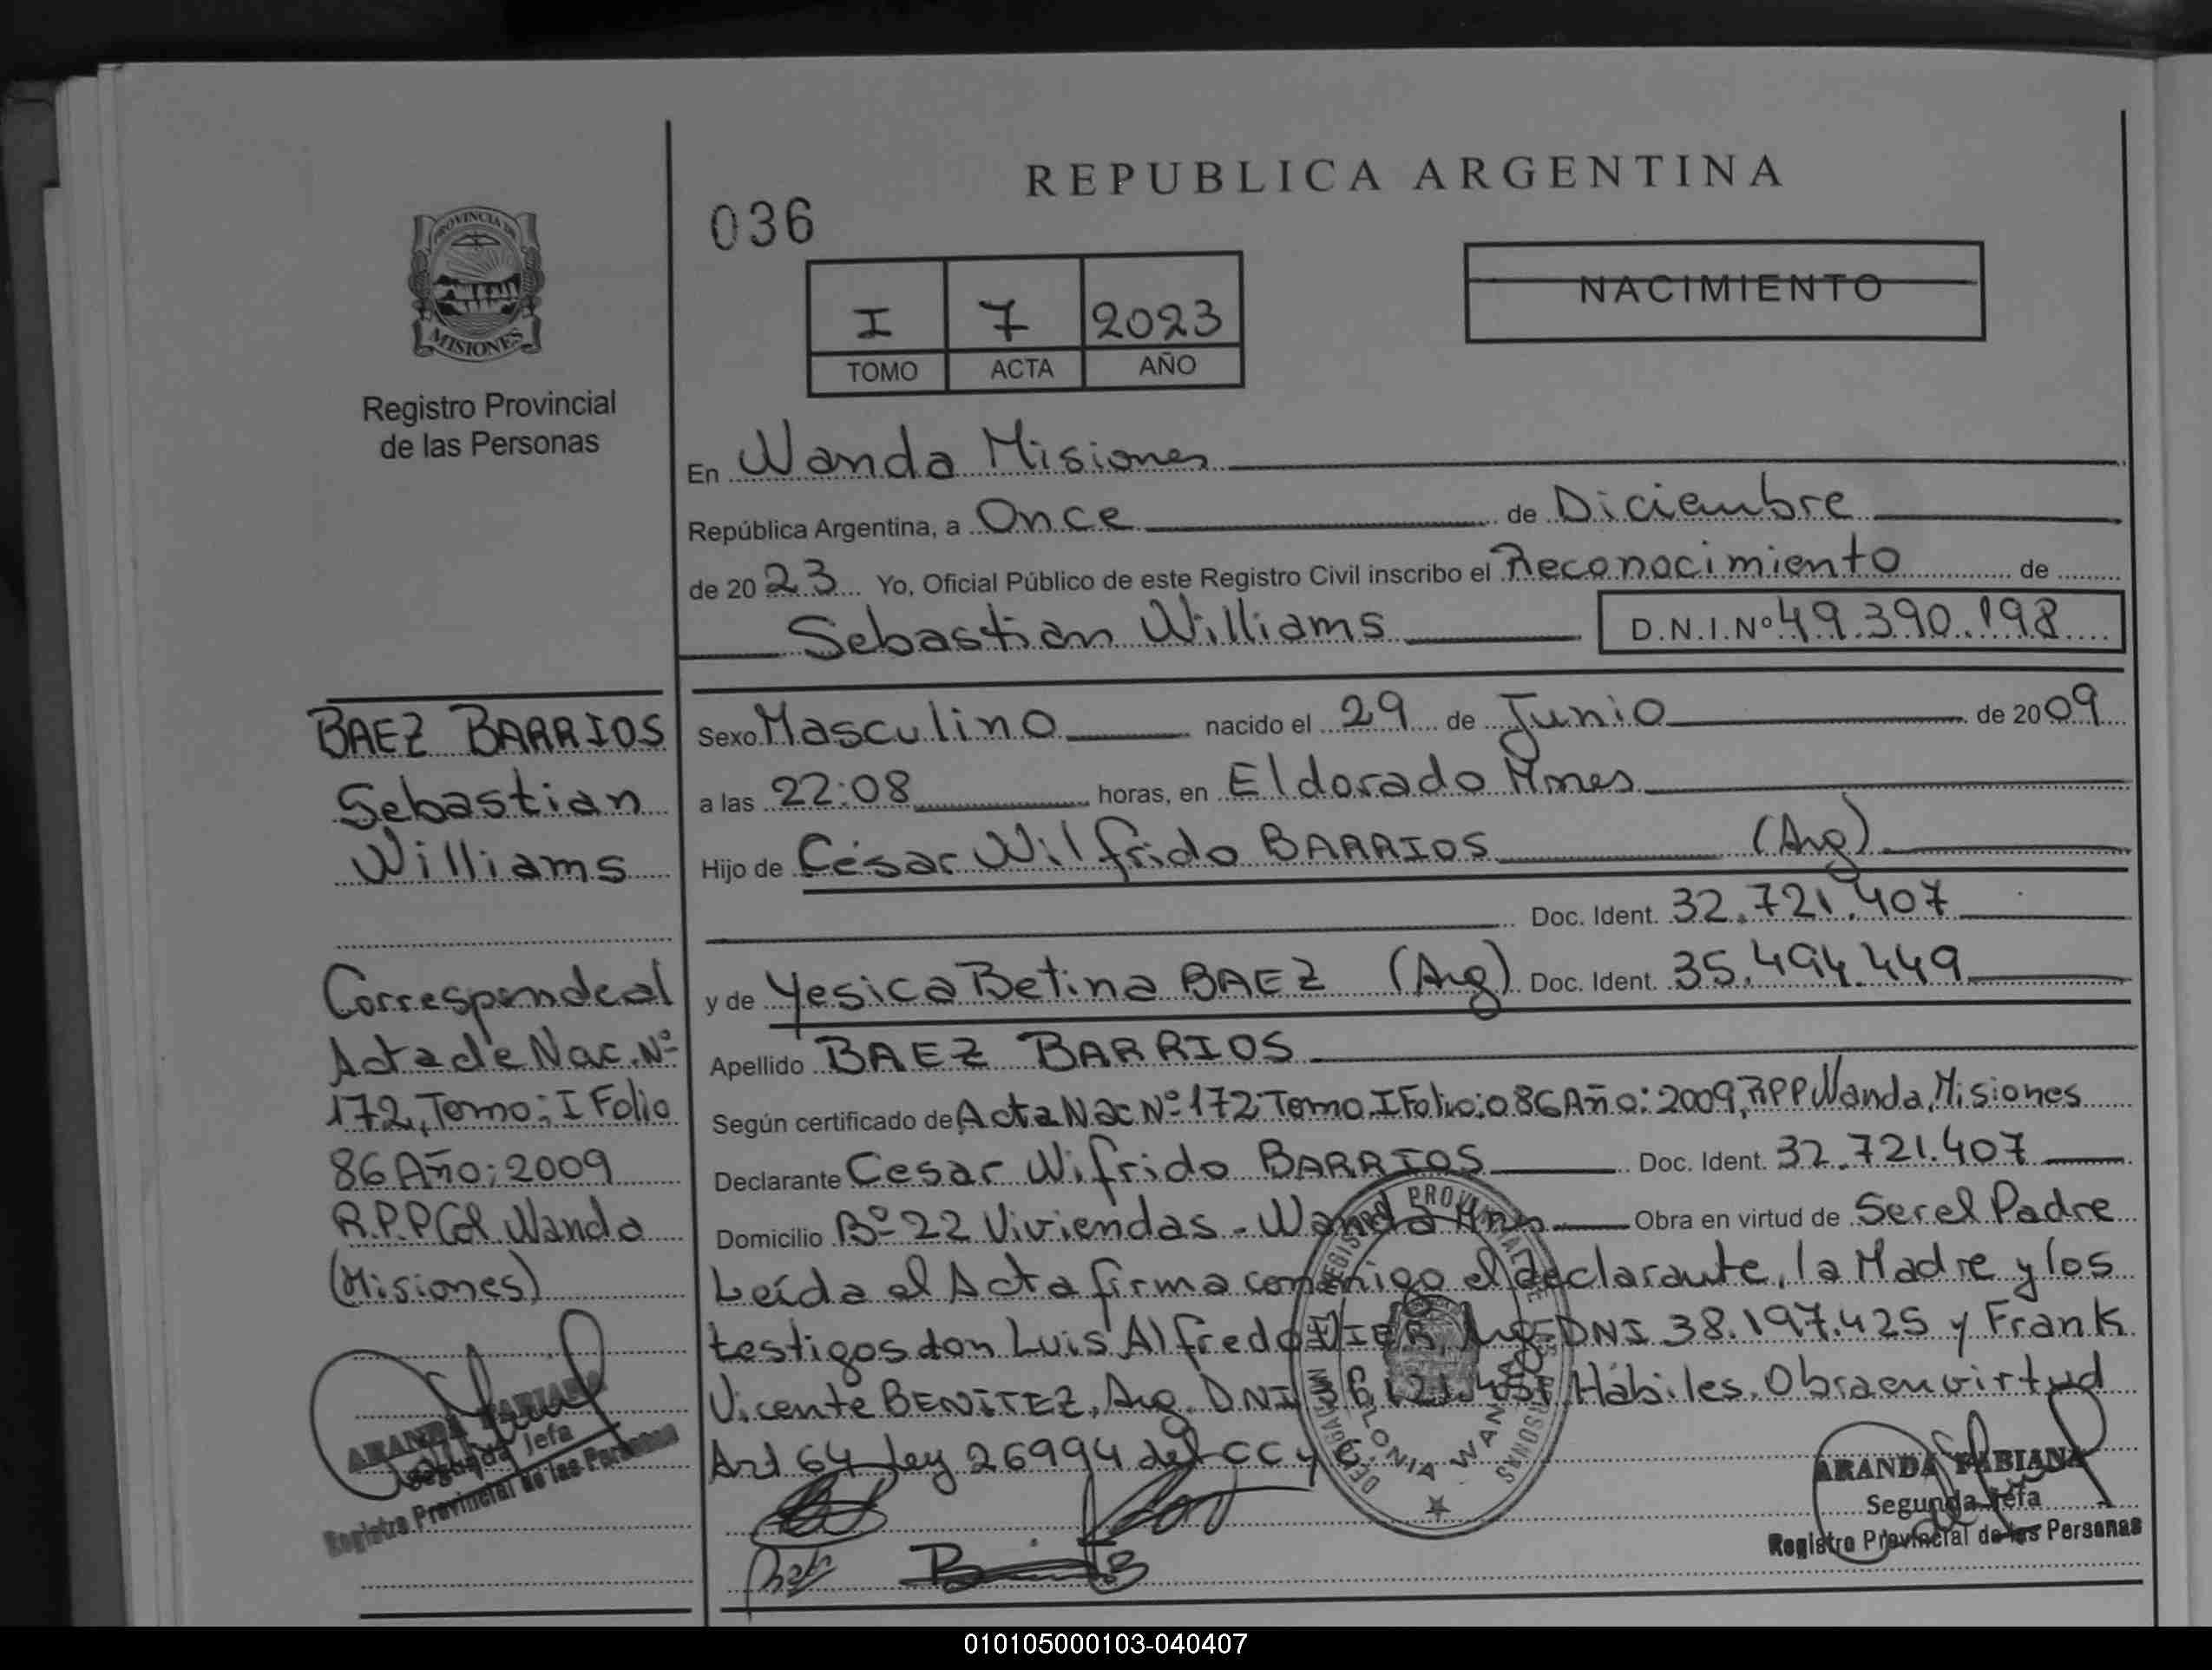 REPUBLICA ARGENTINA
036
PROVINCIA DE
MISIONES
Registro Provincial
de las Personas
I 7 2023
TOMO ACTA AÑO
NACIMIENTO
En Wanda Misiones
República Argentina, a Once de Diciembre
de 2023 Yo, Oficial Público de este Registro Civil inscribo el Reconocimiento de
Sebastian Williams D.N.I.Nº 49.390.198
Sexo Masculino nacido el 29 de Junio de 2009
a las 22:08 horas, en Eldorado Mnes
Hijo de César Wilfrido BARRIOS (Arg)
Doc. Ident. 32.721.407
y de Yesica Betina BAEZ (Arg) Doc. Ident. 35.494.449
Apellido BAEZ BARRIOS
Según certificado de Acta Nac Nº 172 Tomo I Folio: 086 Año: 2009, RPP Wanda, Misiones
Declarante Cesar Wifrido BARRIOS Doc. Ident. 32.721.407
Domicilio Bº 22 Viviendas - Wanda Mnes Obra en virtud de Ser el Padre
Leída el Acta firma conmigo el declarante, la Madre y los
testigos don Luis Alfredo DNI 38.197.425 y Frank
Vicente BENITEZ, Arg. DNI Hábiles. Obra en virtud
Art 64 Ley 26994 del CC y C.
BAEZ BARRIOS
Sebastian
Williams
Corresponde al
Acta de Nac. Nº
172, Tomo: I Folio
86 Año: 2009
R.P.P Col. Wanda
(Misiones)
ARANDA FABIANA
Segunda Jefa
Registro Provincial de las Personas
REGISTRO PROVINCIAL DE LAS PERSONAS
DELEGACION
COLONIA WANDA
ARANDA FABIANA
Segunda Jefa
Registro Provincial de las Personas
010105000103-040407